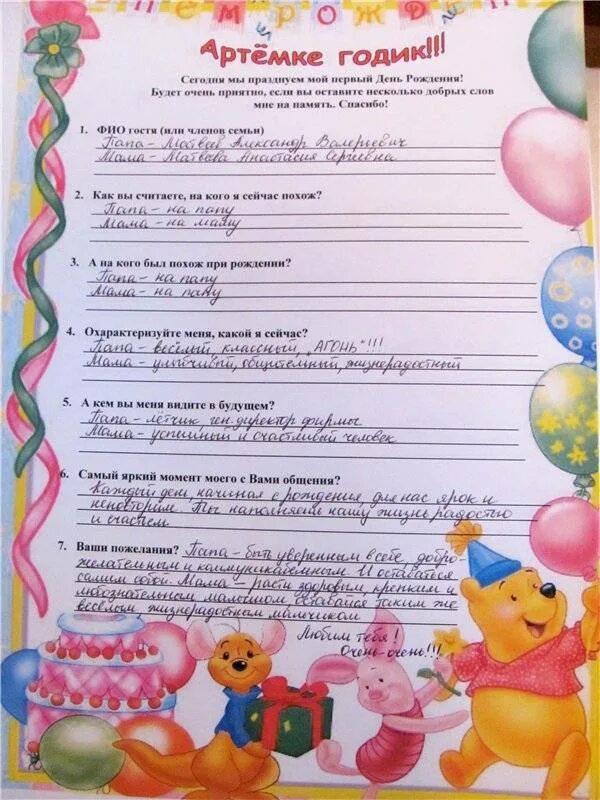 ЕМ РОЖДЕ
Артёмке годик!!!
Сегодня мы празднуем мой первый День Рождения!
Будет очень приятно, если вы оставите несколько добрых слов
мне на память. Спасибо!
1. ФИО гостя (или членов семьи)
Папа - Матвеев Александр Валерьевич
Мама - Матвеева Анастасия Сергеевна
2. Как вы считаете, на кого я сейчас похож?
Папа - на папу
Мама - на маму
3. А на кого был похож при рождении?
Папа - на папу
Мама - на папу
4. Охарактеризуйте меня, какой я сейчас?
Папа - весёлый, классный, "АГОНЬ"!!!
Мама - улыбчивый, общительный, жизнерадостный
5. А кем вы меня видите в будущем?
Папа - лётчик, ген. директор фирмы
Мама - успешный и счастливый человек
6. Самый яркий момент моего с Вами общения?
Каждый день, начиная с рождения для нас ярок и
неповторим. Ты наполняешь нашу жизнь радостью
и счастьем
7. Ваши пожелания? Папа - быть уверенным в себе, добро-
желательным и коммуникабельным. И оставаться
самим собой. Мама - расти здоровым, крепким и
любознательным малышом. Оставайся таким же
весёлым жизнерадостным мальчиком
Любим тебя!
Очень-очень!!!